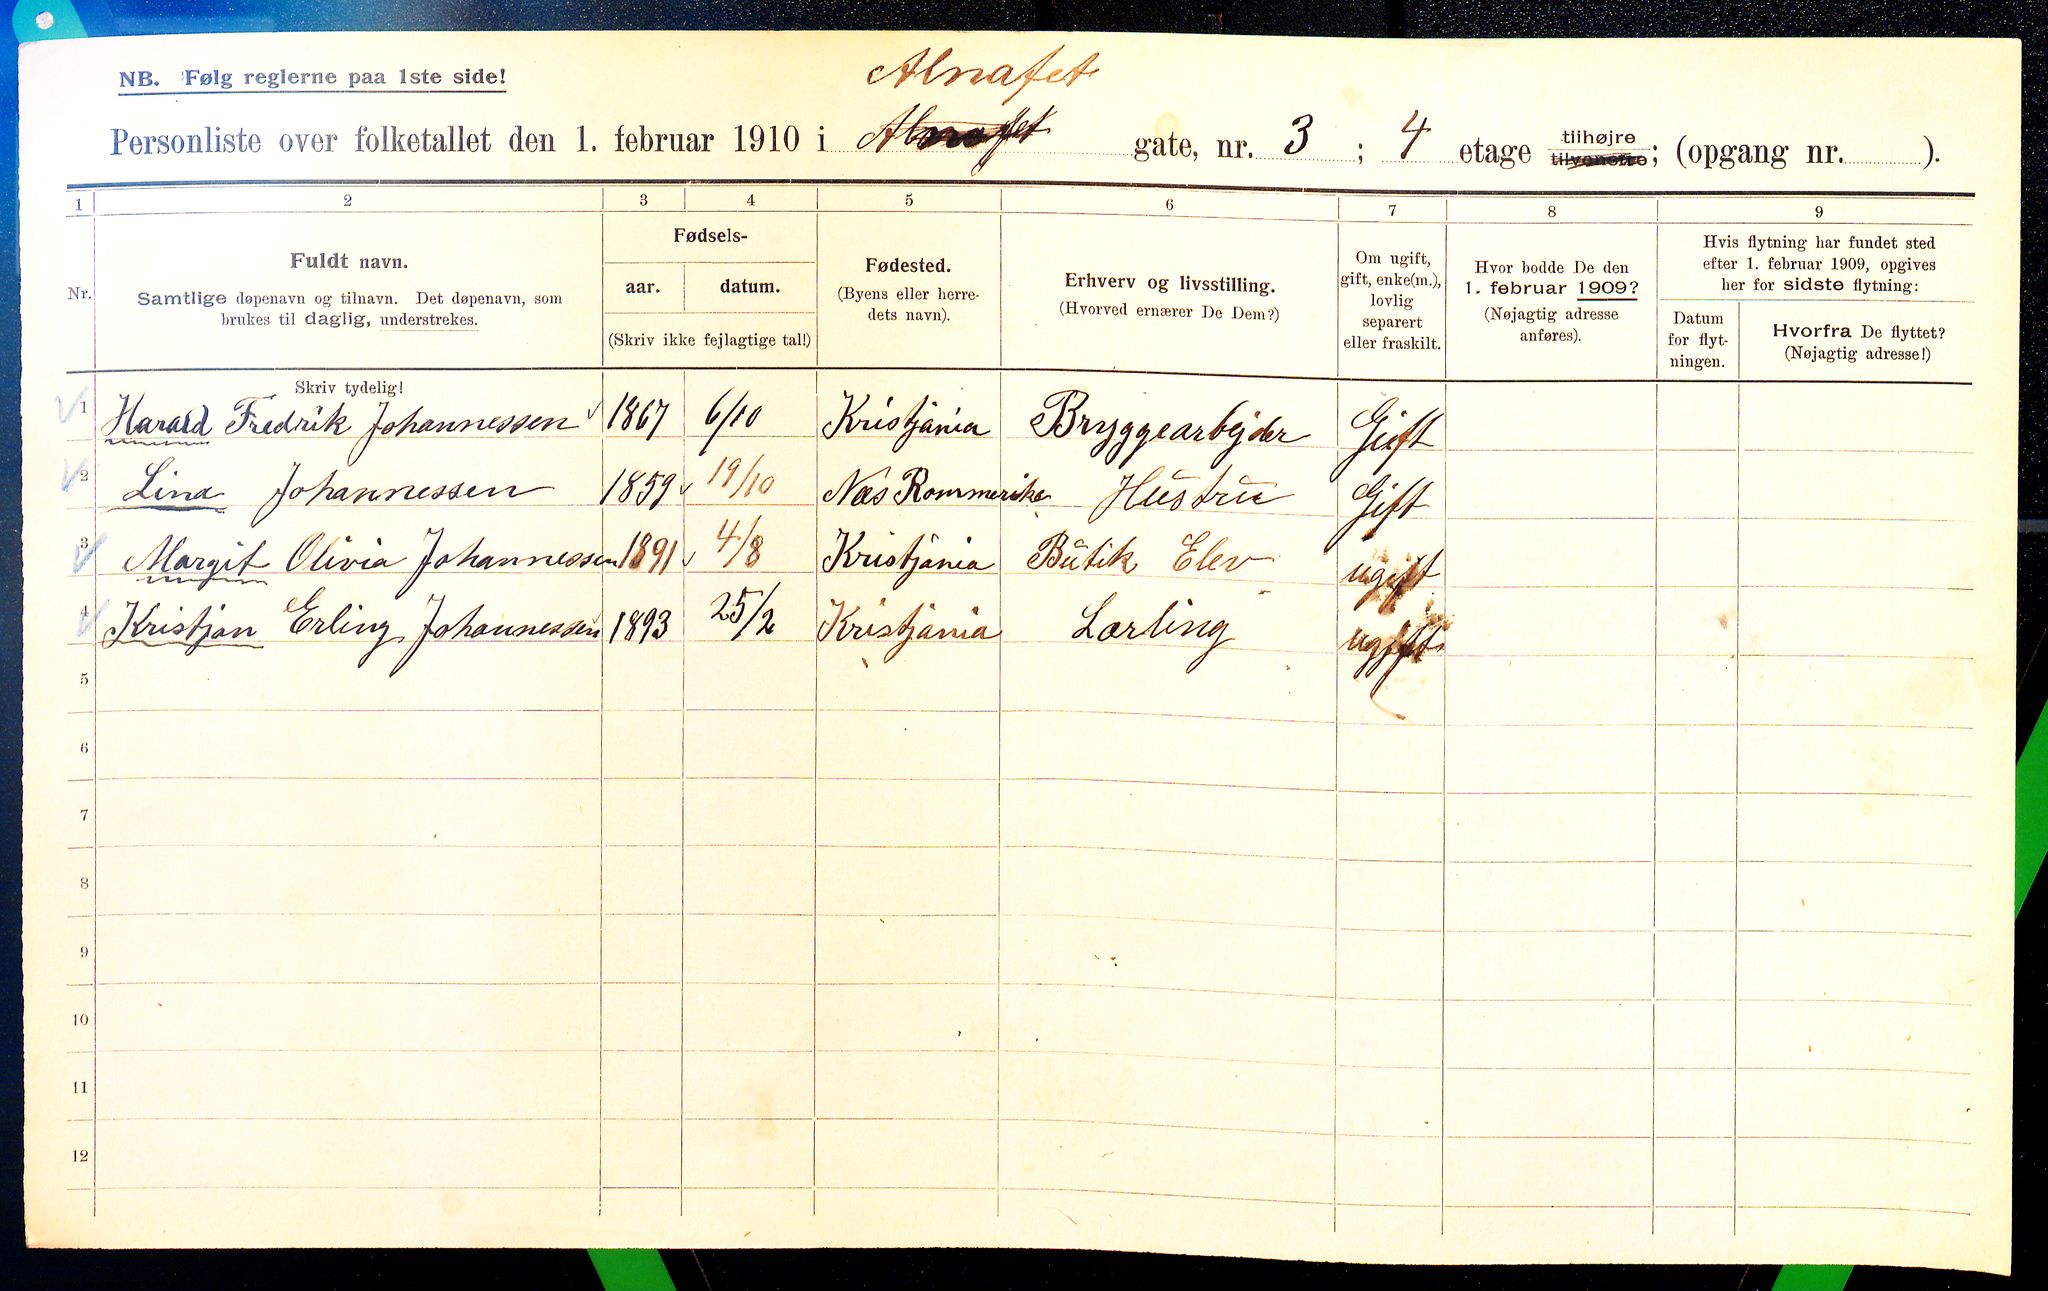 NB. Følg reglerne paa 1ste side!
Alnafet
Personliste over folketallet den 1. februar 1910 i Alnafet gate, nr. 3 ; 4 etage tilhøjre tilvenstre; (opgang nr. ).
1 2 3 4 5 6 7 8 9
Nr.
Fuldt navn.
Samtlige døpenavn og tilnavn. Det døpenavn, som
brukes til daglig, understrekes.
Skriv tydelig!
Fødsels-
aar. datum.
(Skriv ikke fejlagtige tal!)
Fødested.
(Byens eller herre-
dets navn).
Erhverv og livsstilling.
(Hvorved ernærer De Dem?)
Om ugift,
gift, enke(m.),
lovlig
separert
eller fraskilt.
Hvor bodde De den
1. februar 1909?
(Nøjagtig adresse
anføres).
Hvis flytning har fundet sted
efter 1. februar 1909, opgives
her for sidste flytning:
Datum
for flyt-
ningen.
Hvorfra De flyttet?
(Nøjagtig adresse!)
1 Harald Fredrik Johannessen 1867 6/10 Kristjania Bryggearbejder Gift
2 Lina Johannessen 1859 19/10 Næs Rommerike Hustru Gift
3 Margit Olivia Johannessen 1891 4/8 Kristjania Butik Elev ugift
4 Kristjan Erling Johannessen 1893 25/2 Kristjania Lærling ugift
5
6
7
8
9
10
11
12